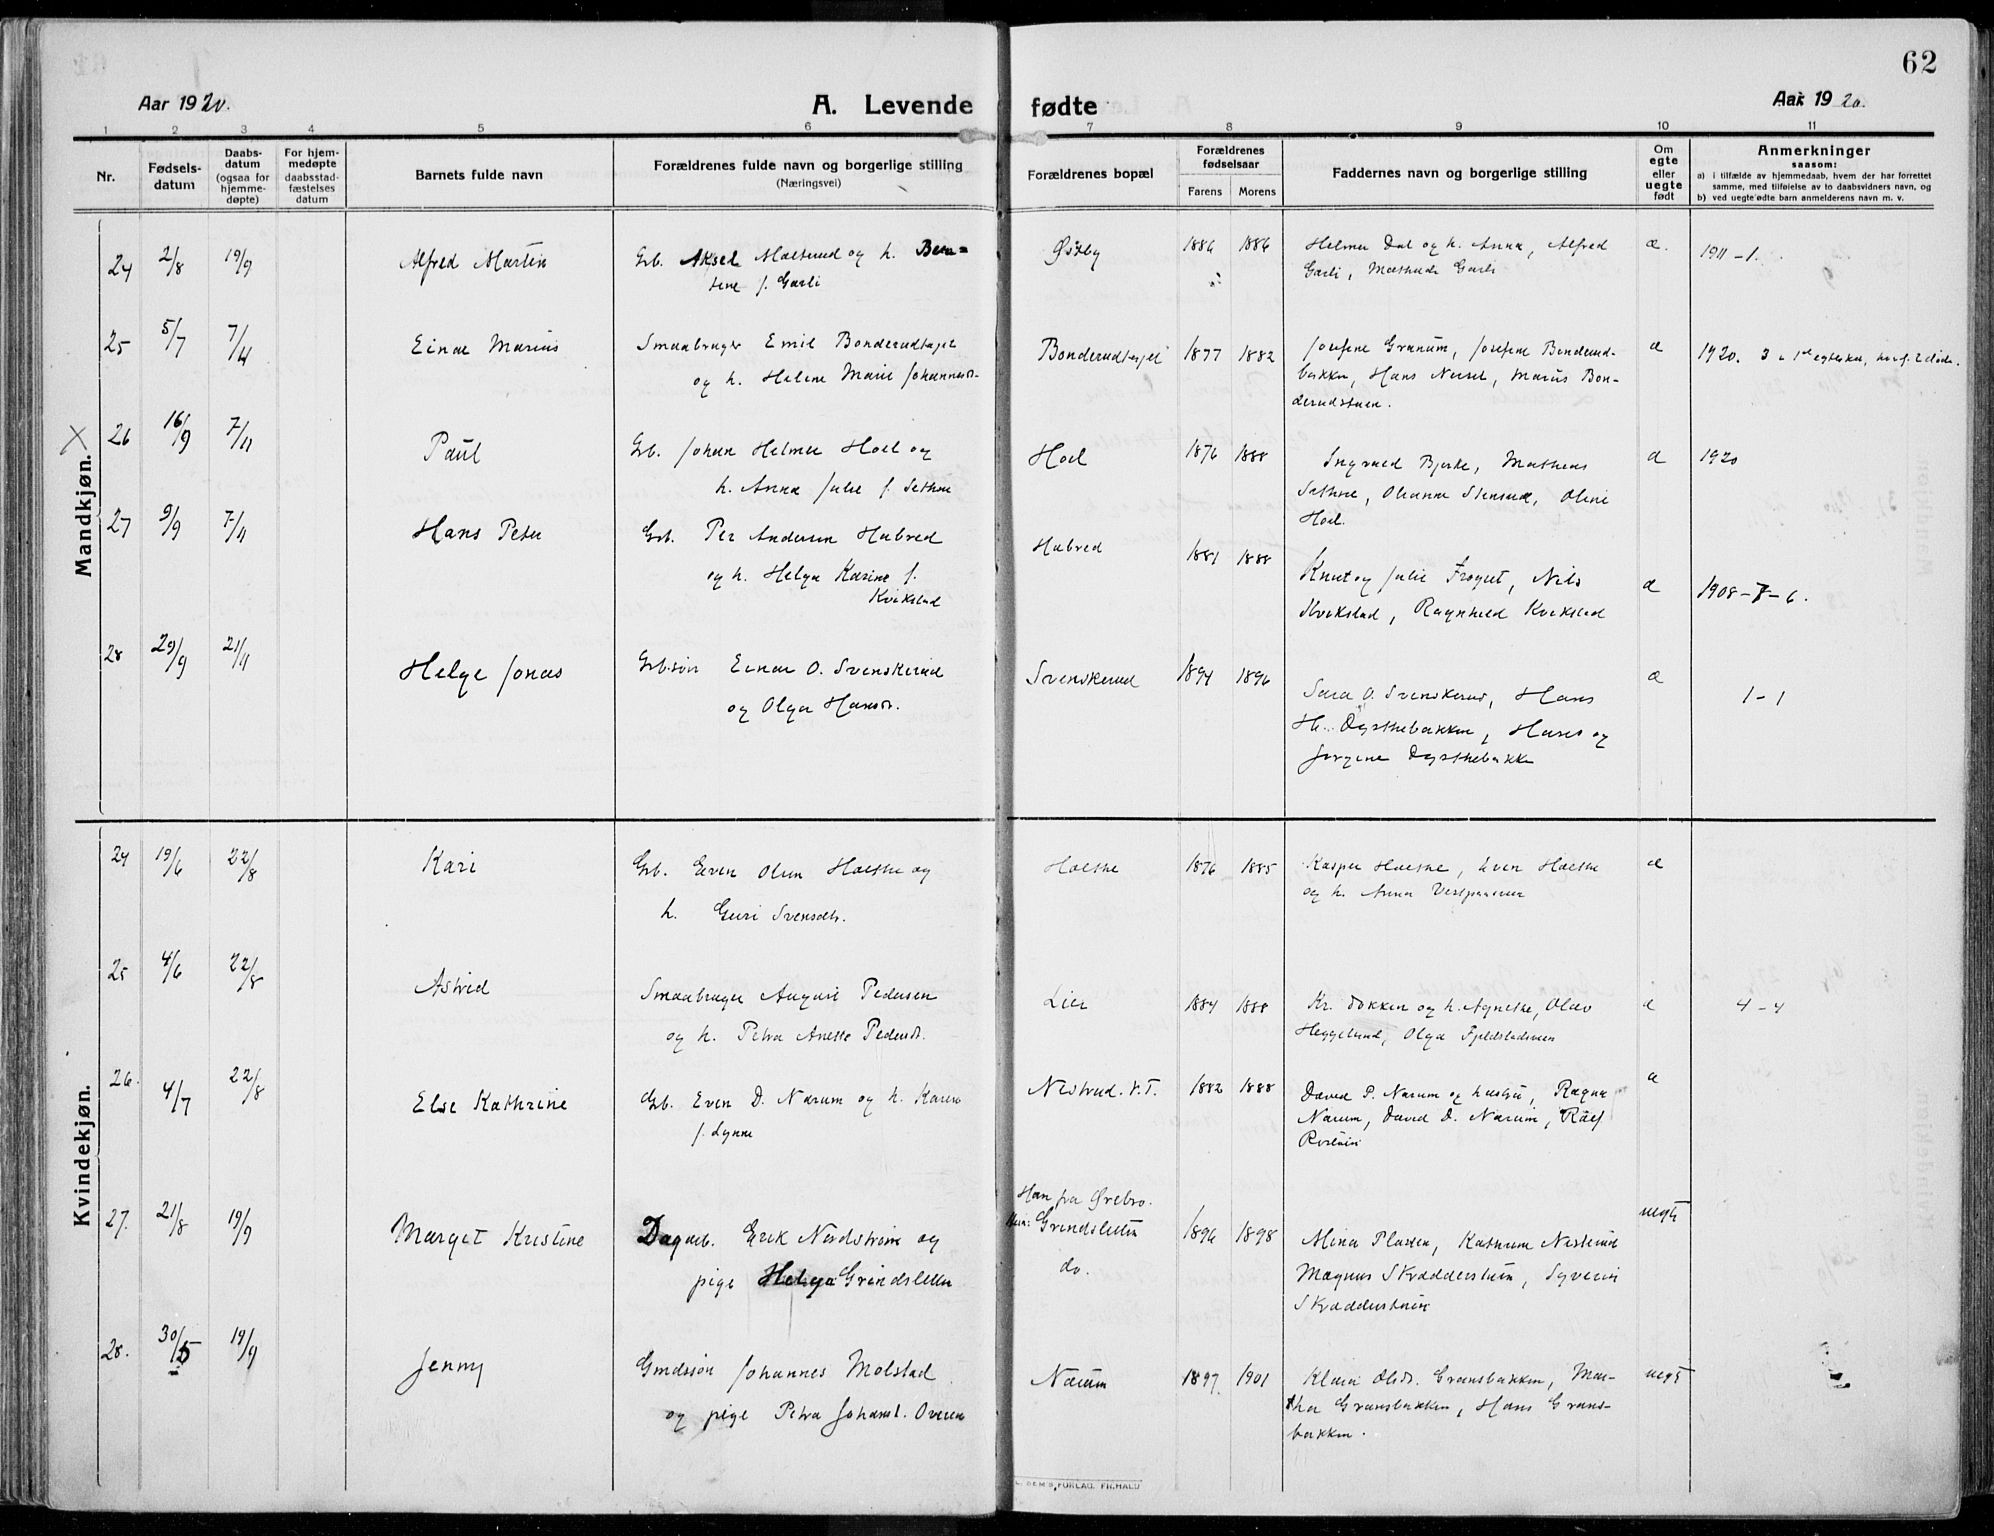 62
Aar 1920.
A. Levende
fødte
Aar 1920.
1 2 3 4 5 6 7 8 9 10 11
Nr.
Fødsels-
datum
Daabs-
datum
(ogsaa for
hjemme-
døpte)
For hjem-
medøpte
daabsstad-
fæstelses
datum
Barnets fulde navn
Forældrenes fulde navn og borgerlige stilling
(Næringsvei)
Forældrenes bopæl
Forældrenes
fødselsaar
Farens Morens
Faddernes navn og borgerlige stilling
Om
egte
eller
uegte
født
Anmerkninger
saasom:
a) i tilfælde av hjemmedaab, hvem der har forrettet
samme, med tilføielse av to daabsvidners navn, og
b) ved uegte fødte barn anmelderens navn m. v.
Mandkjøn.
24 2/8 19/9 Alfred Martin Grb. Aksel Mælerud og h. Ben=
tine f. Garli
Østby 1886 1886 Helmer Dal og h. Anna, Alfred
Garli, Mathilde Garli
æ. 1911 - 1.
25 5/7 7/4 Einar Marius Smaabruger Emil Bonderudteiet
og h. Helene Marie Johannesd.
Bonderudteiet 1877 1882 Josefine Granum, Josefine Bonderud-
bakken, Hans Nersel, Marius Bon-
derudstuen.
æ 1920. 3 i 1ste egteskap,
26 16/9 7/11 Paul Grb. Johan Helmer Hoel og
h. Anna Julie f. Sethne
Hoel 1876 1888 Ingvald Bjerke, Mathias
Sethne, Oleanna Stensrud, Oline
Hoel.
æ 1920
27 9/9 7/11 Hans Peter Grb. Per Andersen Habred
og h. Helga Karine f.
Kvikstad
Habred 1881 1888 Knut og Julie Frøyset, Nils
Kvikstad, Ragnhild Kvikstad
æ 1908 - 7 - 6.
28 29/9 21/11 Helge Jonas Grb.søn Einar O. Svenskerud
og Olga Hansd.
Svenskerud 1894 1896 Sara O. Svenskerud, Hans
H. Dysthebakken, Hans og
Jørgine Dysthebakke
æ 1 - 1
Kvindekjøn.
24 19/6 22/8 Kari Grb. Even Olsen Holthe og
h. Guri Svensdtr.
Holthe 1876 1885 Kasper Holthe, Even Holthe
og h. Anna
æ
25 4/6 22/8 Astrid Smaabruger August Pedersen
og h. Petra Anette Pedersd.
Lier 1884 1888 Kr. Dokken og h. Agnethe, Olav
Heggelund, Olga Fjeldstadsveen
æ 4 - 4
26. 4/7 22/8 Else Kathrine Grb. Even D. Narum og h. Karen
f. Lynne
Nestrud. V.T. 1882 1888 David P. Narum og hustru, Ragna
Narum, David D. Narum, Rolf
æ
27. 21/8 19/9 Marget Kristine Dagarb. Erik Nordstrøm og
pige Helga Grindsletten
Han fra Ørebro.
Hun: Grindsletten
do.
1896 1898 Alma Pladsen, Kathrine Nestrud
Magnus Skrædderstuen, Syverin
Skrædderstuen
uegte
28. 30/5 19/9 Jenny Gmdssøn Johannes Molstad
og pige Petra Johansd. Overen
Narum 1897. 1901 Klara Olsd. Gransbakken, Mar-
tha Gransbakken, Hans Grans-
bakken.
uegt
FORLAG. FR.HALD